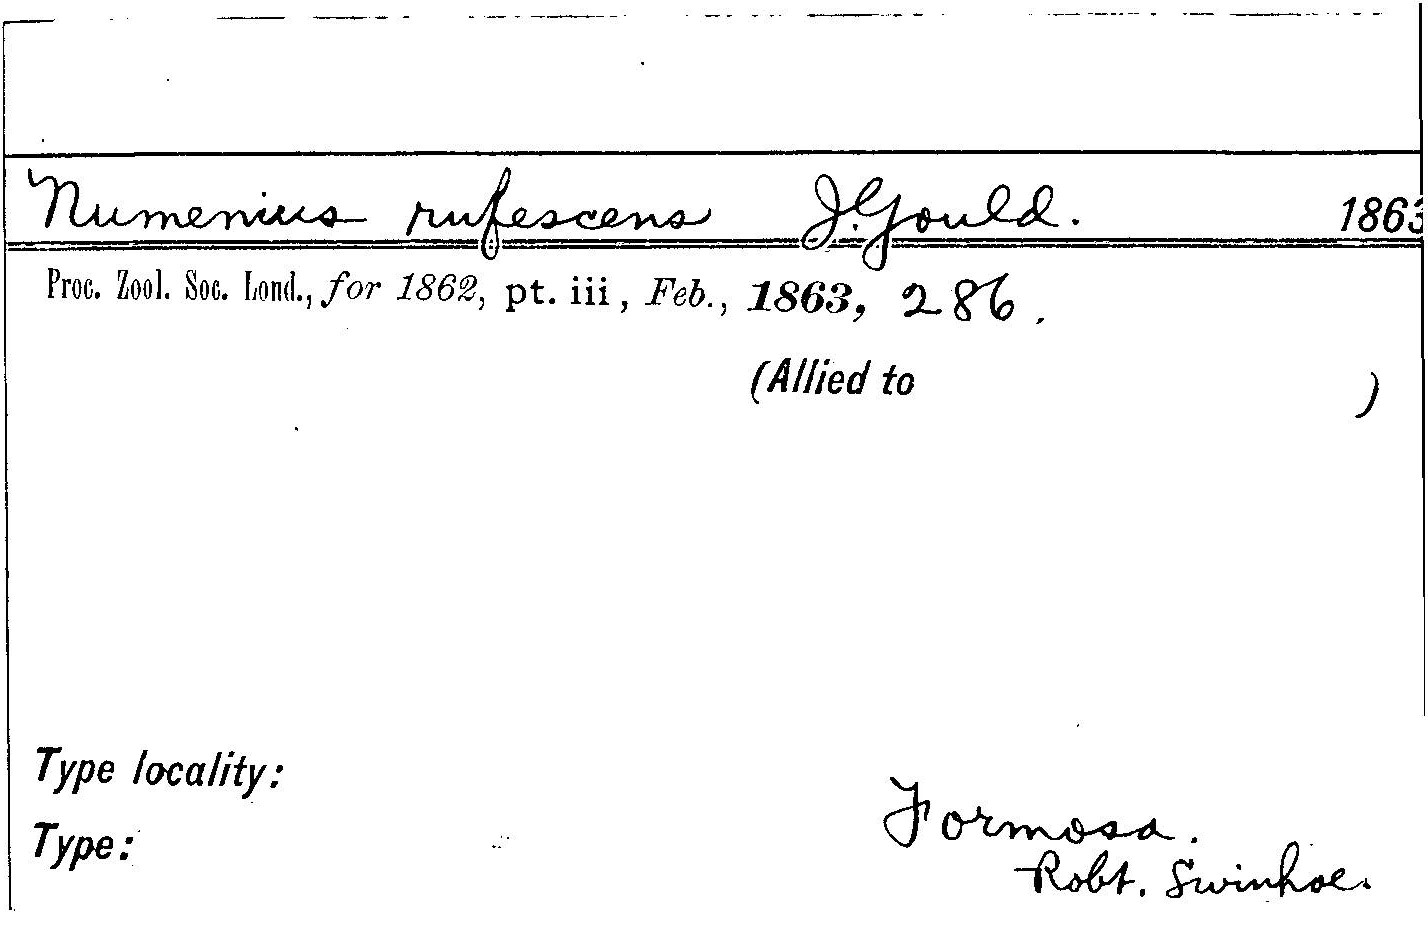 Numenius rufescens J. Gould. 1863
Proc. Zool. Soc. Lond., for 1862, pt. iii, Feb., 1863, 286.
(Allied to )
Type locality:
Formosa.
Type:
Robt. Swinhoe.